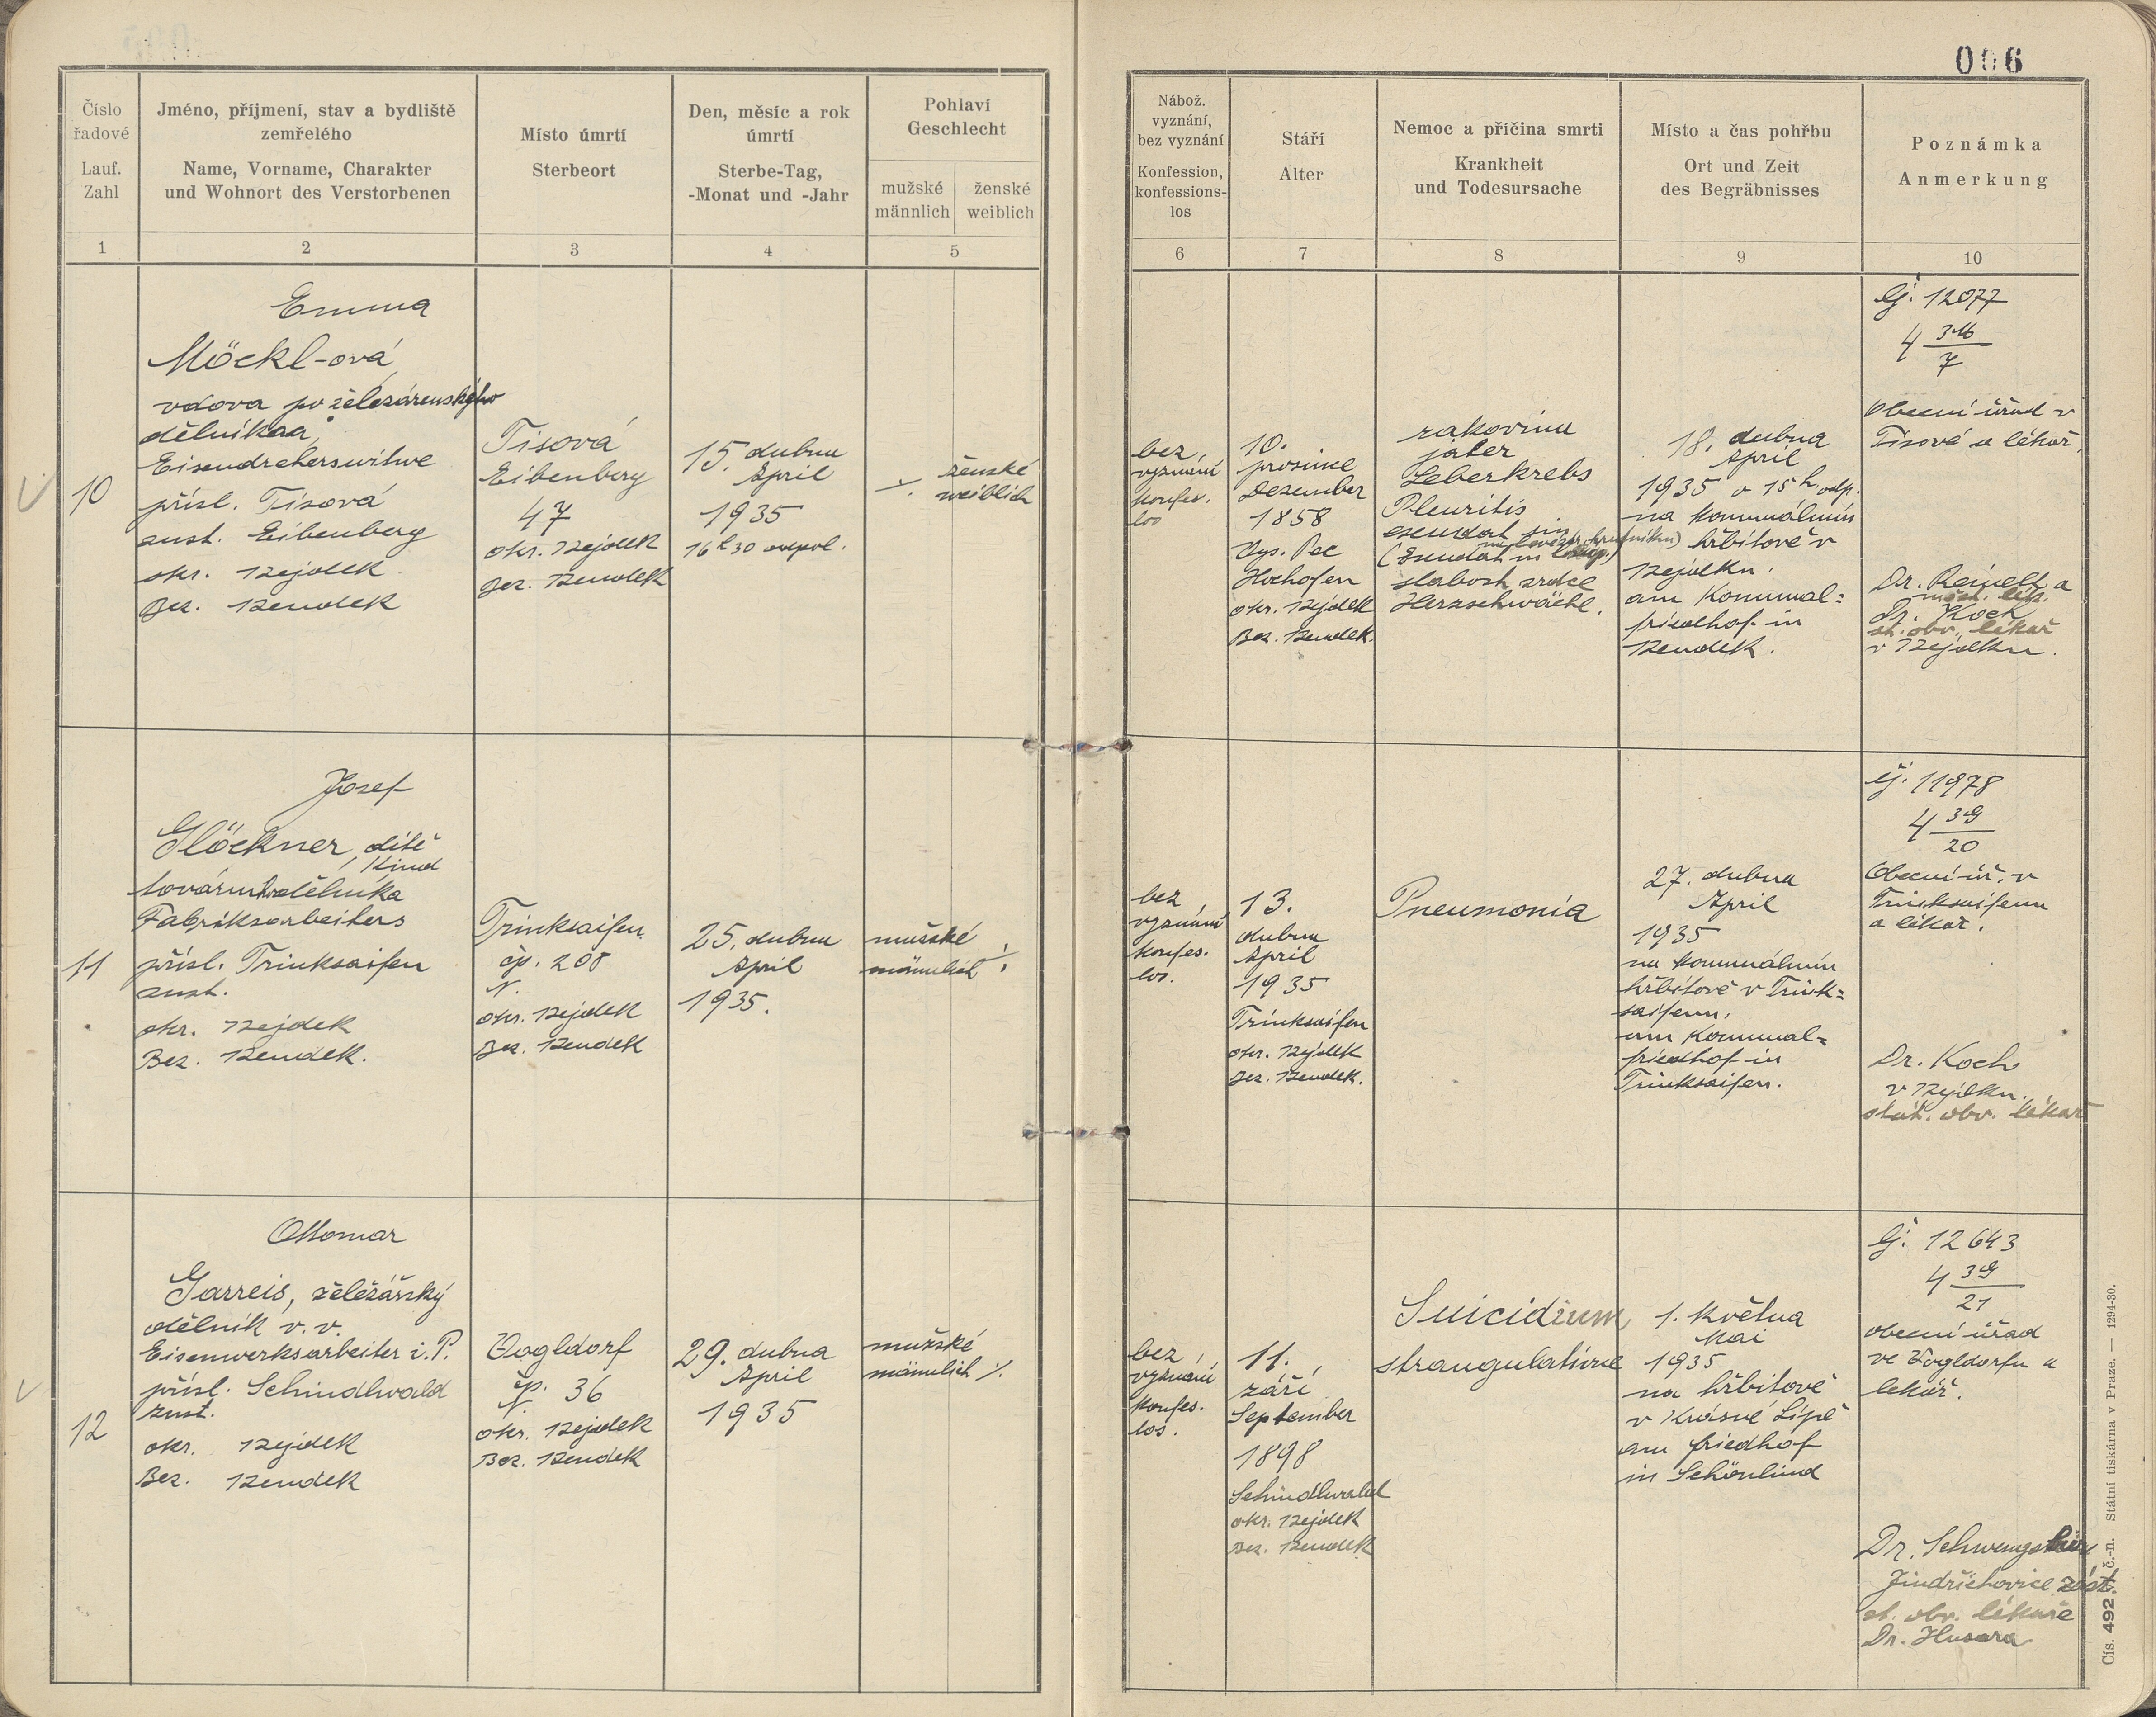 006
Číslo
řadové
Lauf.
Zahl
1
Jméno, příjmení, stav a bydliště
zemřelého
Name, Vorname, Charakter
und Wohnort des Verstorbenen
2
Místo úmrtí
Sterbeort
3
Den, měsíc a rok
úmrtí
Sterbe-Tag,
-Monat und -Jahr
4
Pohlaví
Geschlecht
mužské
männlich
ženské
weiblich
5
Nábož.
vyznání,
bez vyznání
Konfession,
konfessions-
los
6
Stáří
Alter
7
Nemoc a příčina smrti
Krankheit
und Todesursache
8
Místo a čas pohřbu
Ort und Zeit
des Begräbnisses
9
Poznámka
Anmerkung
10
10
Emma
Möckl-ová
vdova po železárenského
dělníka
Eisendreherswitwe
přísl. Tisová
zust. Eibenberg
okr. Nejdek
Bez. Neudek
Tisová
Eibenberg
47
okr. Nejdek
Bez. Neudek
15. dubna
April
1935
16h30 odpol.
ženské
weiblich
bez
vyznání
konfes.
los
10.
prosince
Dezember
1858
Vys. Pec
Hochofen
okr. Nejdek
Bez. Neudek.
rakovina
jater
Leberkrebs
Pleuritis
exsudat sin
slabost srdce
Herzschwäche.
18. dubna
April
1935 v 15h odp.
na komunálním
hřbitově v
Nejdku.
am Kommual=
friedhof in
Neudek.
Čj. 12077
4 316
7
Obecní úřad v
Tisové a lékař.
Dr. Reinelt a
měst. lék.
Dr. Koch
st. obv. lékař
v Nejdku.
11
Josef
Glöckner, dítě
Kind
továrního dělníka
Fabriksarbeiters
přísl. Trinksaifen
zust.
okr. Nejdek
Bez. Neudek.
Trinksaifen
čp. 208
N.
okr. Nejdek
Bez. Neudek
25. dubna
April
1935.
mužské
männlich
bez
vyznání
konfes.
los.
13.
dubna
April
1935
Trinksaifen
okr. Nejdek
Bez. Neudek.
Pneumonia
27. dubna
April
1935
na komunálním
hřbitově v Trink=
saifenu.
am Kommual=
friedhof in
Trinksaifen.
Čj. 11978
4 39
20
Obecní úř. v
Trinksaifenu
a lékař.
Dr. Koch
v Nejdku.
stát. obv. lékař
12
Ottomar
Garreis, železářský
dělník v. v.
Eisenwerksarbeiter i. P.
přísl. Schindlwald
zust.
okr. Nejdek
Bez. Neudek
Vogldorf
čp. 36
N.
okr. Nejdek
Bez. Neudek
29. dubna
April
1935
mužské
männlich
bez
vyznání
konfes.
los.
11.
září
September
1898
Schindlwald
okr. Nejdek
Bez. Neudek
Suicidium
strangulatione
1. května
Mai
1935
na hřbitově
v Krásné Lípě
am friedhof
in Schönlind
Čj. 12643
4 39
21
obecní úřad
ve Vogldorfu a
lekář.
Dr.
Jindřichovice zást.
st. obv. lékaře
Dr. Husara
Čís. 492 č.-n. Státní tiskárna v Praze. — 1294-30.